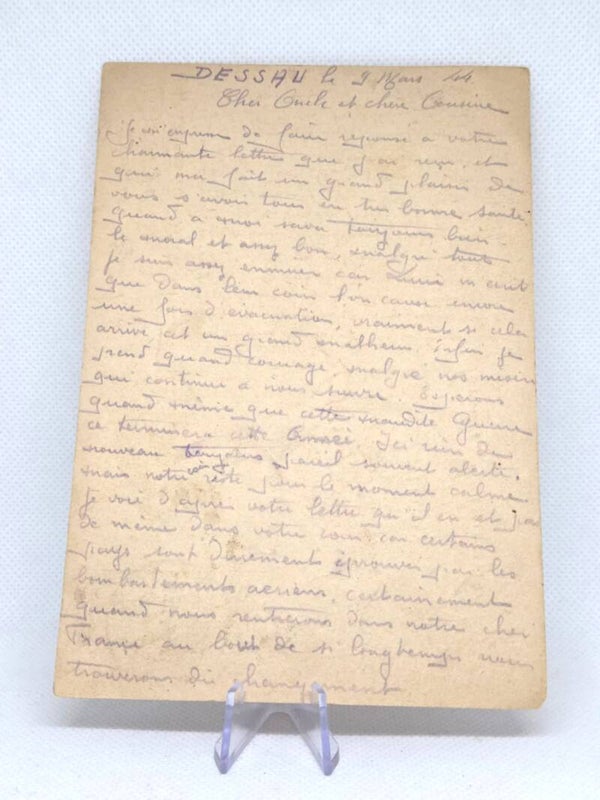 DESSAU le 9 Mars 44
Cher Oncle et chère Cousine
Je m'empresse de faire reponse a votre
charmante lettre que j'ai reçu, et
qui ma fait un grand plaisir de
vous s'avoir tous en très bonne santé
quand a moi sava toujours bien
le moral et assy bon, malgre tout
je suis assy ennuier car m'ecrit
que dans leur coin l'on cause encore
une fois d'evacuation, vraiment si cela
arrive cet un grand malheur. Enfin je
prend quand courage malgre nos miseres
qui continue a nous suivre. Esperons
quand même que cette maudite Guerre
ce terminera cette année. Ici rien de
nouveau toujours pareil souvent alerte,
mais notre coin reste pour le moment calme.
Je voie d'après votre lettre qu'il en et pas
de même dans votre coin car certains
pays sont durements eprouver par les
bombardements aeriens, certainement
quand nous rentrerons dans notre cher
France au bout de si longtemps nous
trouverons du changement